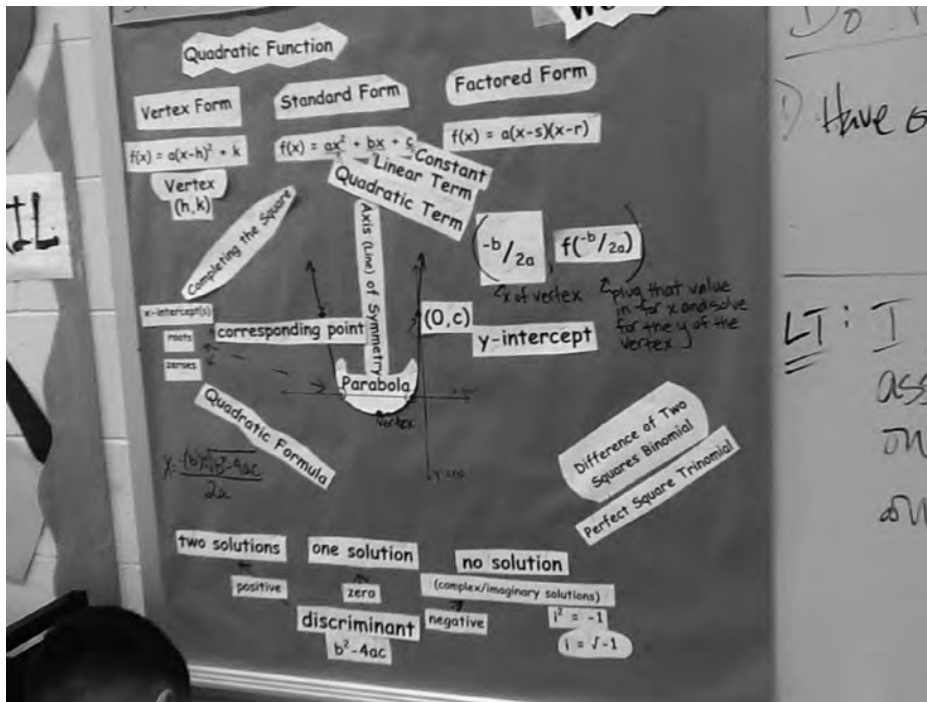 Quadratic Function
Vertex Form
Standard Form
Factored Form
f(x) = a(x-h)² + k
f(x) = ax² + bx + c
f(x) = a(x-s)(x-r)
Constant
Linear Term
Quadratic Term
Vertex
(h,k)
Completing the Square
Axis (Line) of Symmetry
(-b/2a, f(-b/2a))
x of vertex
plug that value
in for x and solve
for the y of the
vertex
x-intercept(s)
roots
zeroes
corresponding point
(0,c)
y-intercept
Parabola
vertex
Quadratic Formula
2a
Difference of Two
Squares Binomial
Perfect Square Trinomial
two solutions
one solution
no solution
(complex/imaginary solutions)
positive
zero
negative
i² = -1
i = √-1
discriminant
b²-4ac
Do
Have
LT: I